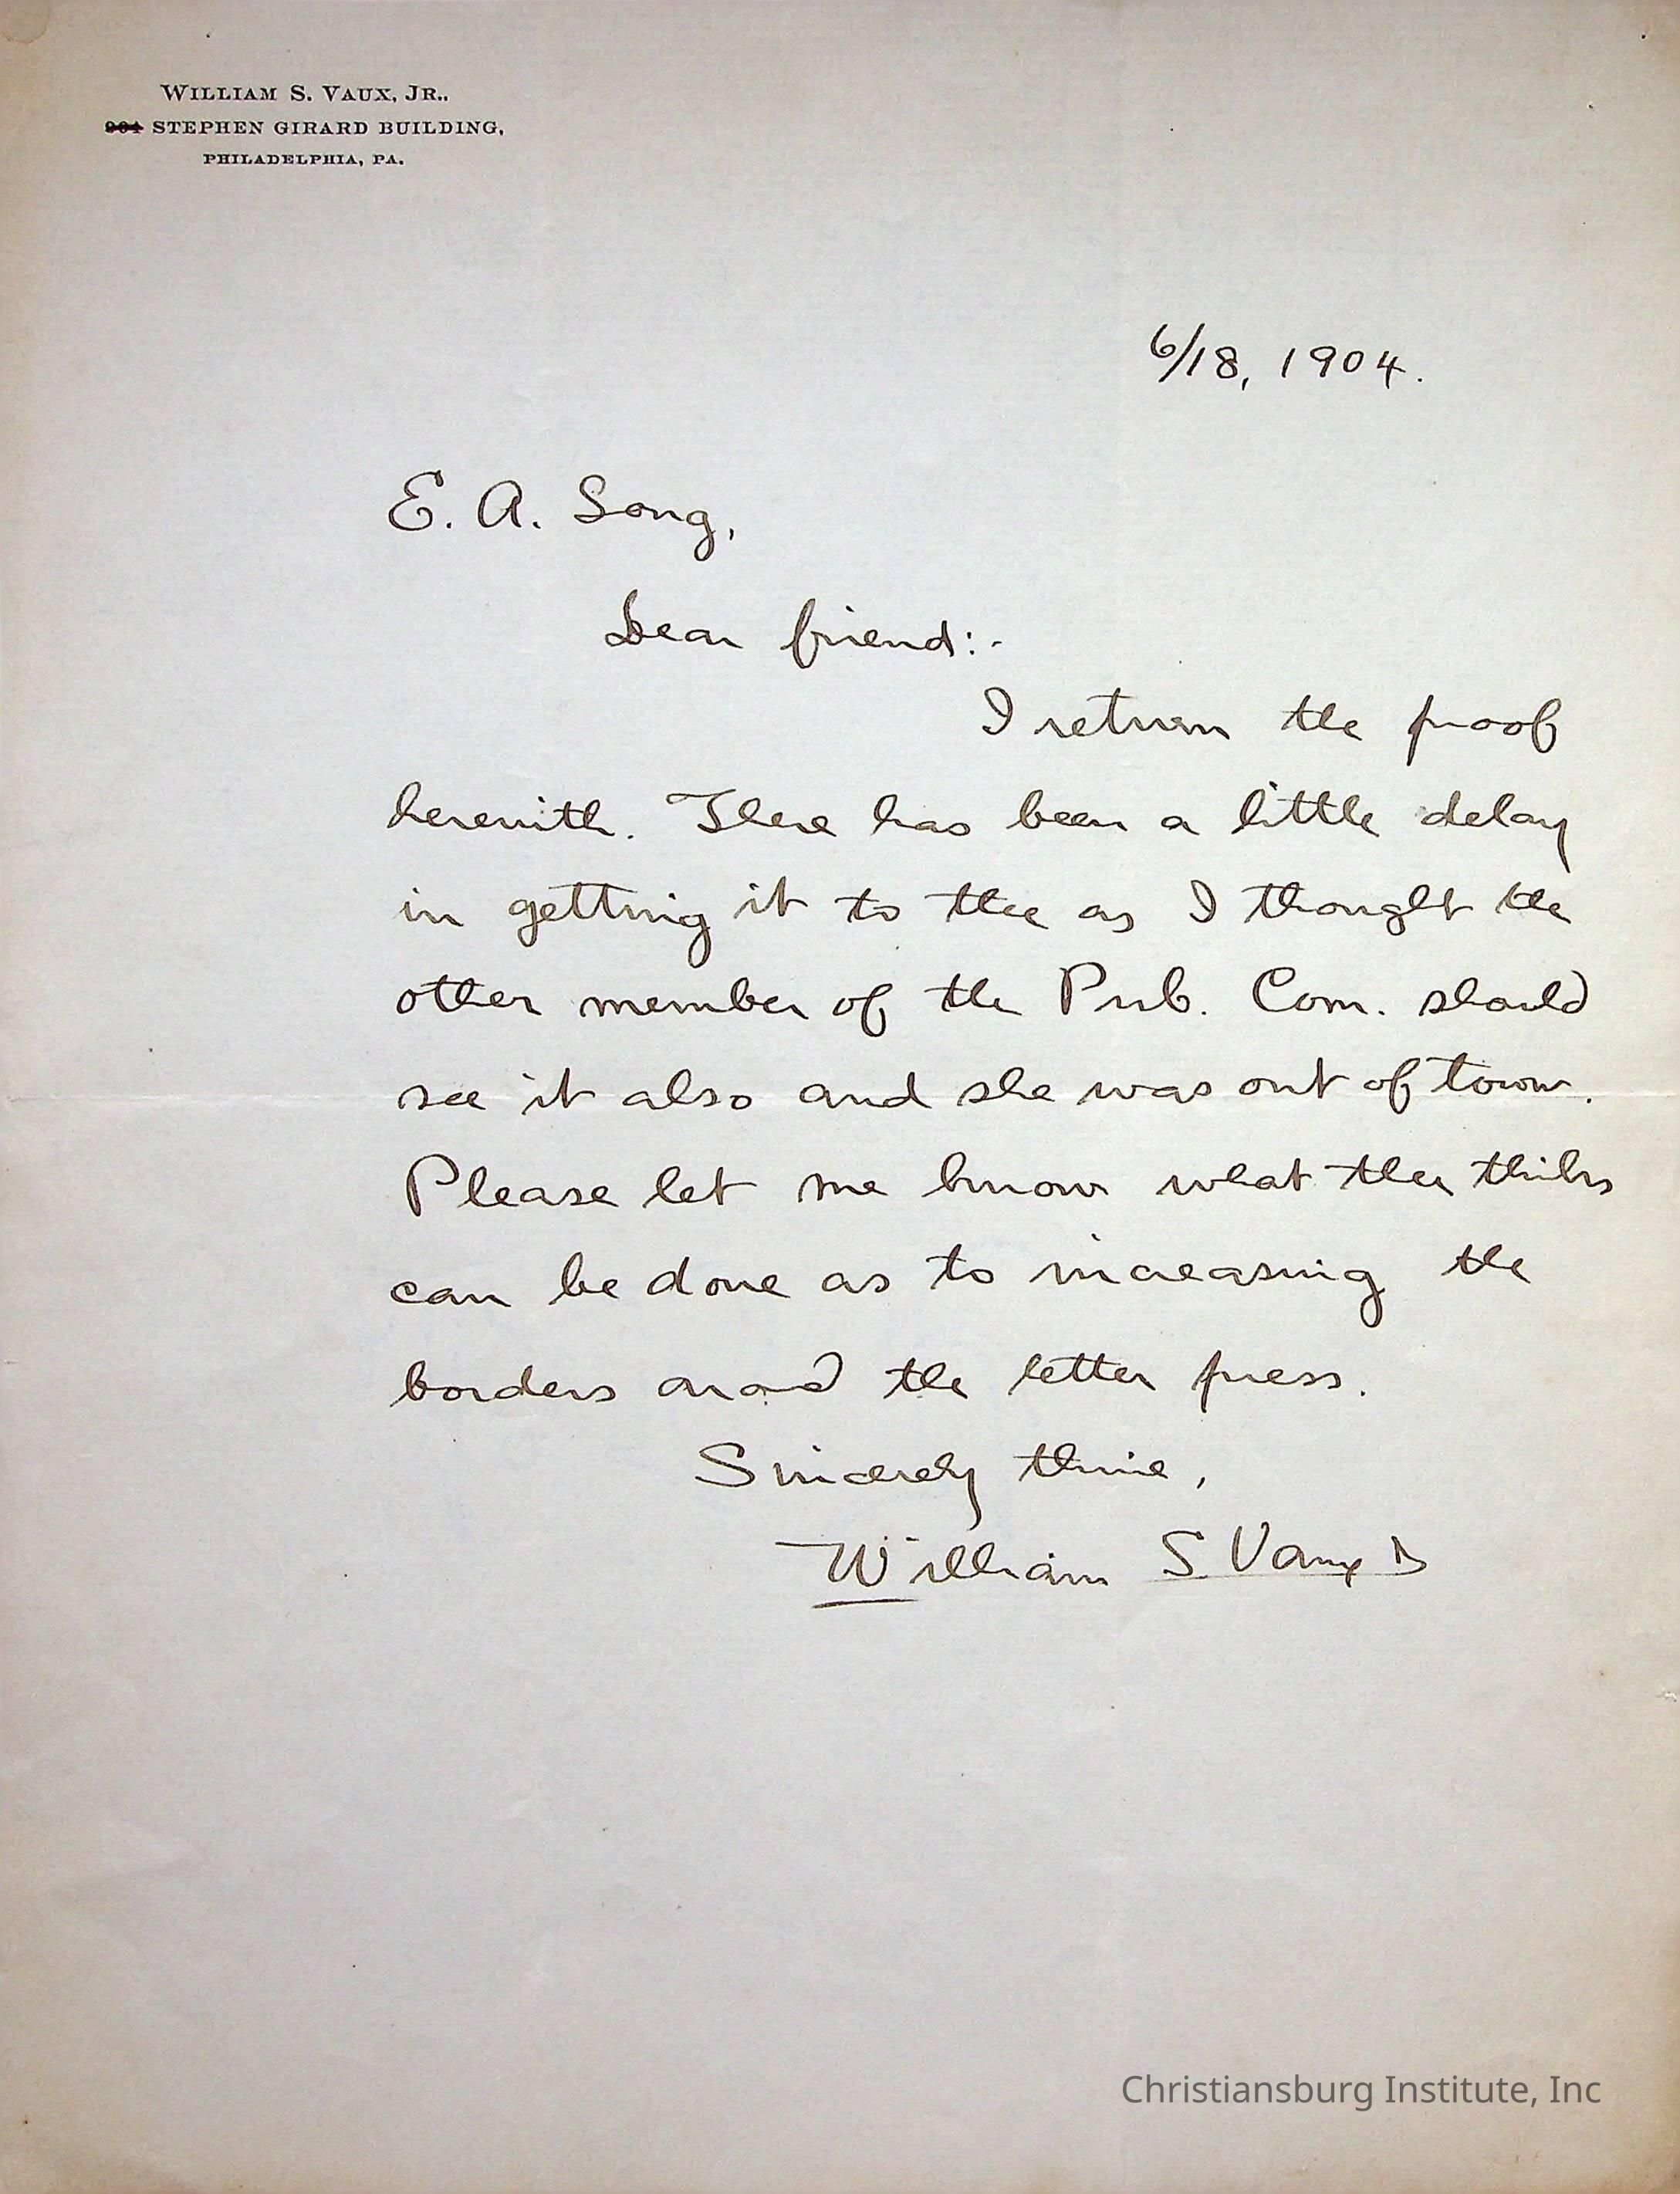 WILLIAM S. VAUX, JR.,
904 STEPHEN GIRARD BUILDING,
PHILADELPHIA, PA.
6/18, 1904.
E. A. Long,
Dear friend:-
I return the proof
herewith. There has been a little delay
in getting it to thee as I thought the
other member of the Pub. Com. should
see it also and she was out of town.
Please let me know what thee thinks
can be done as to increasing the
borders around the letter press.
Sincerely thine,
William S. Vaux Jr
Christiansburg Institute, Inc